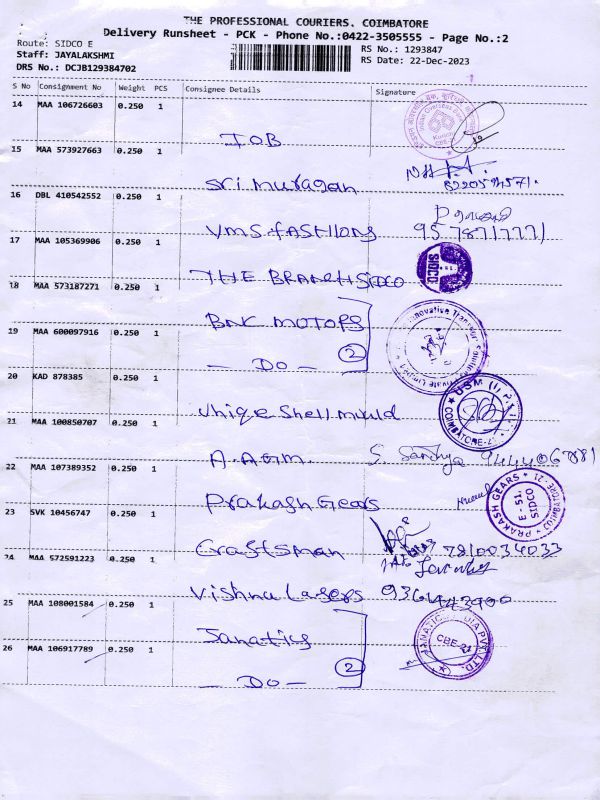 THE PROFESSIONAL COURIERS, COIMBATORE
Delivery Runsheet - PCK - Phone No.:0422-3505555 - Page No.:2
Route: SIDCO E
RS No.: 1293847
Staff: JAYALAKSHMI
RS Date: 22-Dec-2023
DRS No.: DCJB129384702
S No Consignment No Weight PCS Consignee Details Signature
14 MAA 106726603 0.250 1
IOB
15 MAA 573927663 0.250 1
Sri Murugan
16 DBL 410542552 0.250 1
VMS FASHIONS
17 MAA 105369906 0.250 1
THE BRANCH SIDCO
SIDCO
18 MAA 573187271 0.250 1
BNC MOTORS
19 MAA 600097916 0.250 1
— DO — 2
20 KAD 878385 0.250 1
Unique Shell mould
21 MAA 100850707 0.250 1
A.A.GM. S. Sandhya
22 MAA 107389352 0.250 1
Prakash Gears
PRAKASH GEARS
E - 51,
SIDCO
23 SVK 10456747 0.250 1
Craftsman 7810034033
24 MAA 572591223 0.250 1
Vishnu Lasers
25 MAA 108001584 0.250 1
Janatics
CBE-21
26 MAA 106917789 0.250 1
— DO — 2